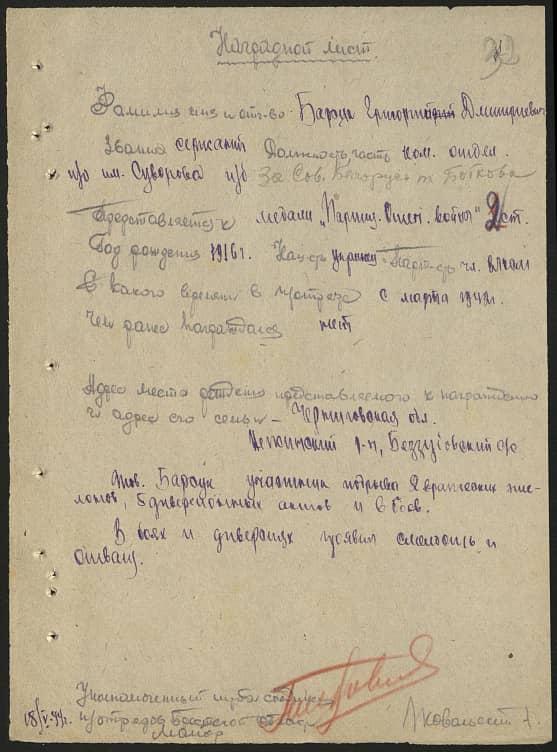 Наградной лист
32
Фамилия имя и отч-во Барсук Григорий Дмитриевич
Звание сержант Должность, часть ком. отдел.
п/о им. Суворова п/б За Сов. Белорусь т. Бы
Представляется к медали "Партиз. Отеч. войны" 2 ст.
Год рождения 1916 г. Нац-сть украинец Парт-сть чл. ВЛКСМ
С какого времени в п/отряде с марта 1942 г.
Чем ранее награждался нет
Адрес места представляемого к награждению
и адрес его семьи – Черниговская обл.
Нежинский р-н, с/с
Тов. Барсук участник подрыва 2 вражеских эше-
лонов, 5 диверсионных актов и 6 боев.
В боях и диверсиях проявил смелость и
отвагу.
Уполномоченный
18/V-44г. п/отрядов Брестской области
Майор
Ковальский